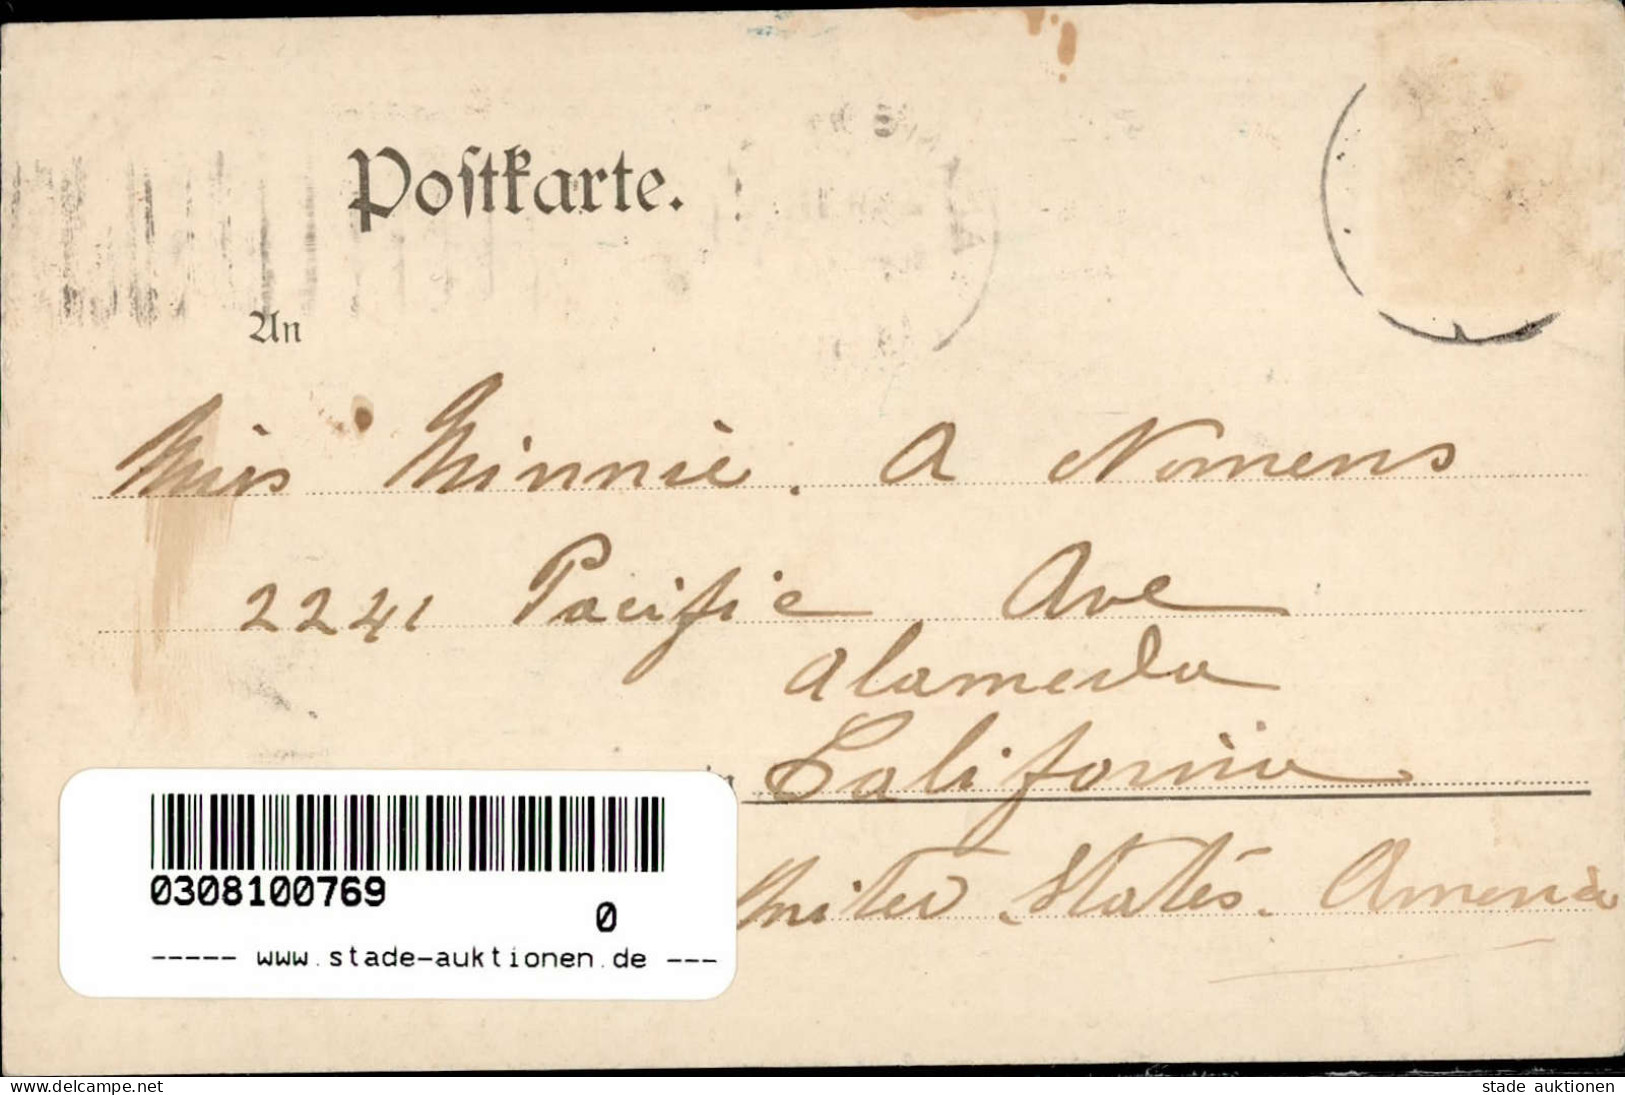 Postkarte.
An
Miss Minnie. A Nomens
2241 Pacific Ave
Alameda
in California.
United States. America
0308100769
0
----- www.stade-auktionen.de ---
oldthing.de
stade auktionen